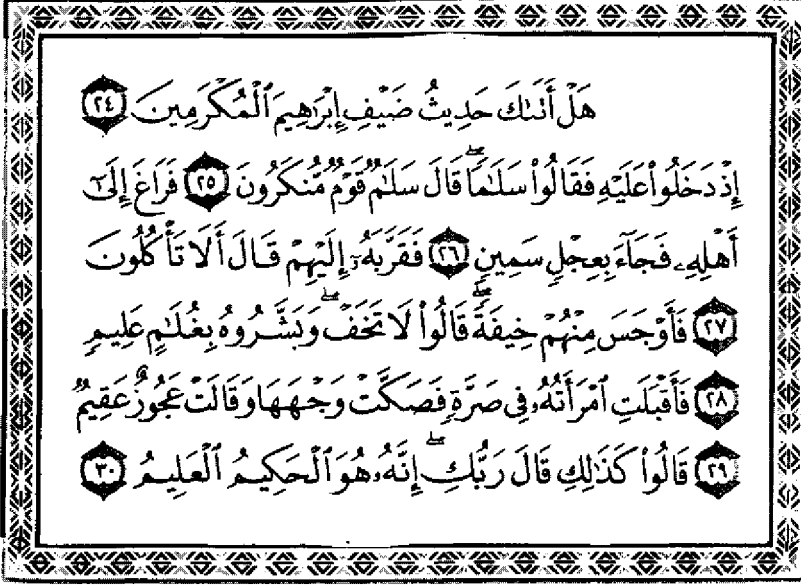 هَلْ أَتَىٰكَ حَدِيثُ ضَيْفِ إِبْرَٰهِيمَ ٱلْمُكْرَمِينَ ٢٤
إِذْ دَخَلُوا۟ عَلَيْهِ فَقَالُوا۟ سَلَٰمًا ۖ قَالَ سَلَٰمٌ قَوْمٌ مُّنكَرُونَ ٢٥ فَرَاغَ إِلَىٰٓ
أَهْلِهِۦ فَجَآءَ بِعِجْلٍ سَمِينٍ ٢٦ فَقَرَّبَهُۥٓ إِلَيْهِمْ قَالَ أَلَا تَأْكُلُونَ
٢٧ فَأَوْجَسَ مِنْهُمْ خِيفَةً ۖ قَالُوا۟ لَا تَخَفْ ۖ وَبَشَّرُوهُ بِغُلَٰمٍ عَلِيمٍ
٢٨ فَأَقْبَلَتِ ٱمْرَأَتُهُۥ فِى صَرَّةٍ فَصَكَّتْ وَجْهَهَا وَقَالَتْ عَجُوزٌ عَقِيمٌ
٢٩ قَالُوا۟ كَذَٰلِكِ قَالَ رَبُّكِ ۖ إِنَّهُۥ هُوَ ٱلْحَكِيمُ ٱلْعَلِيمُ ٣٠